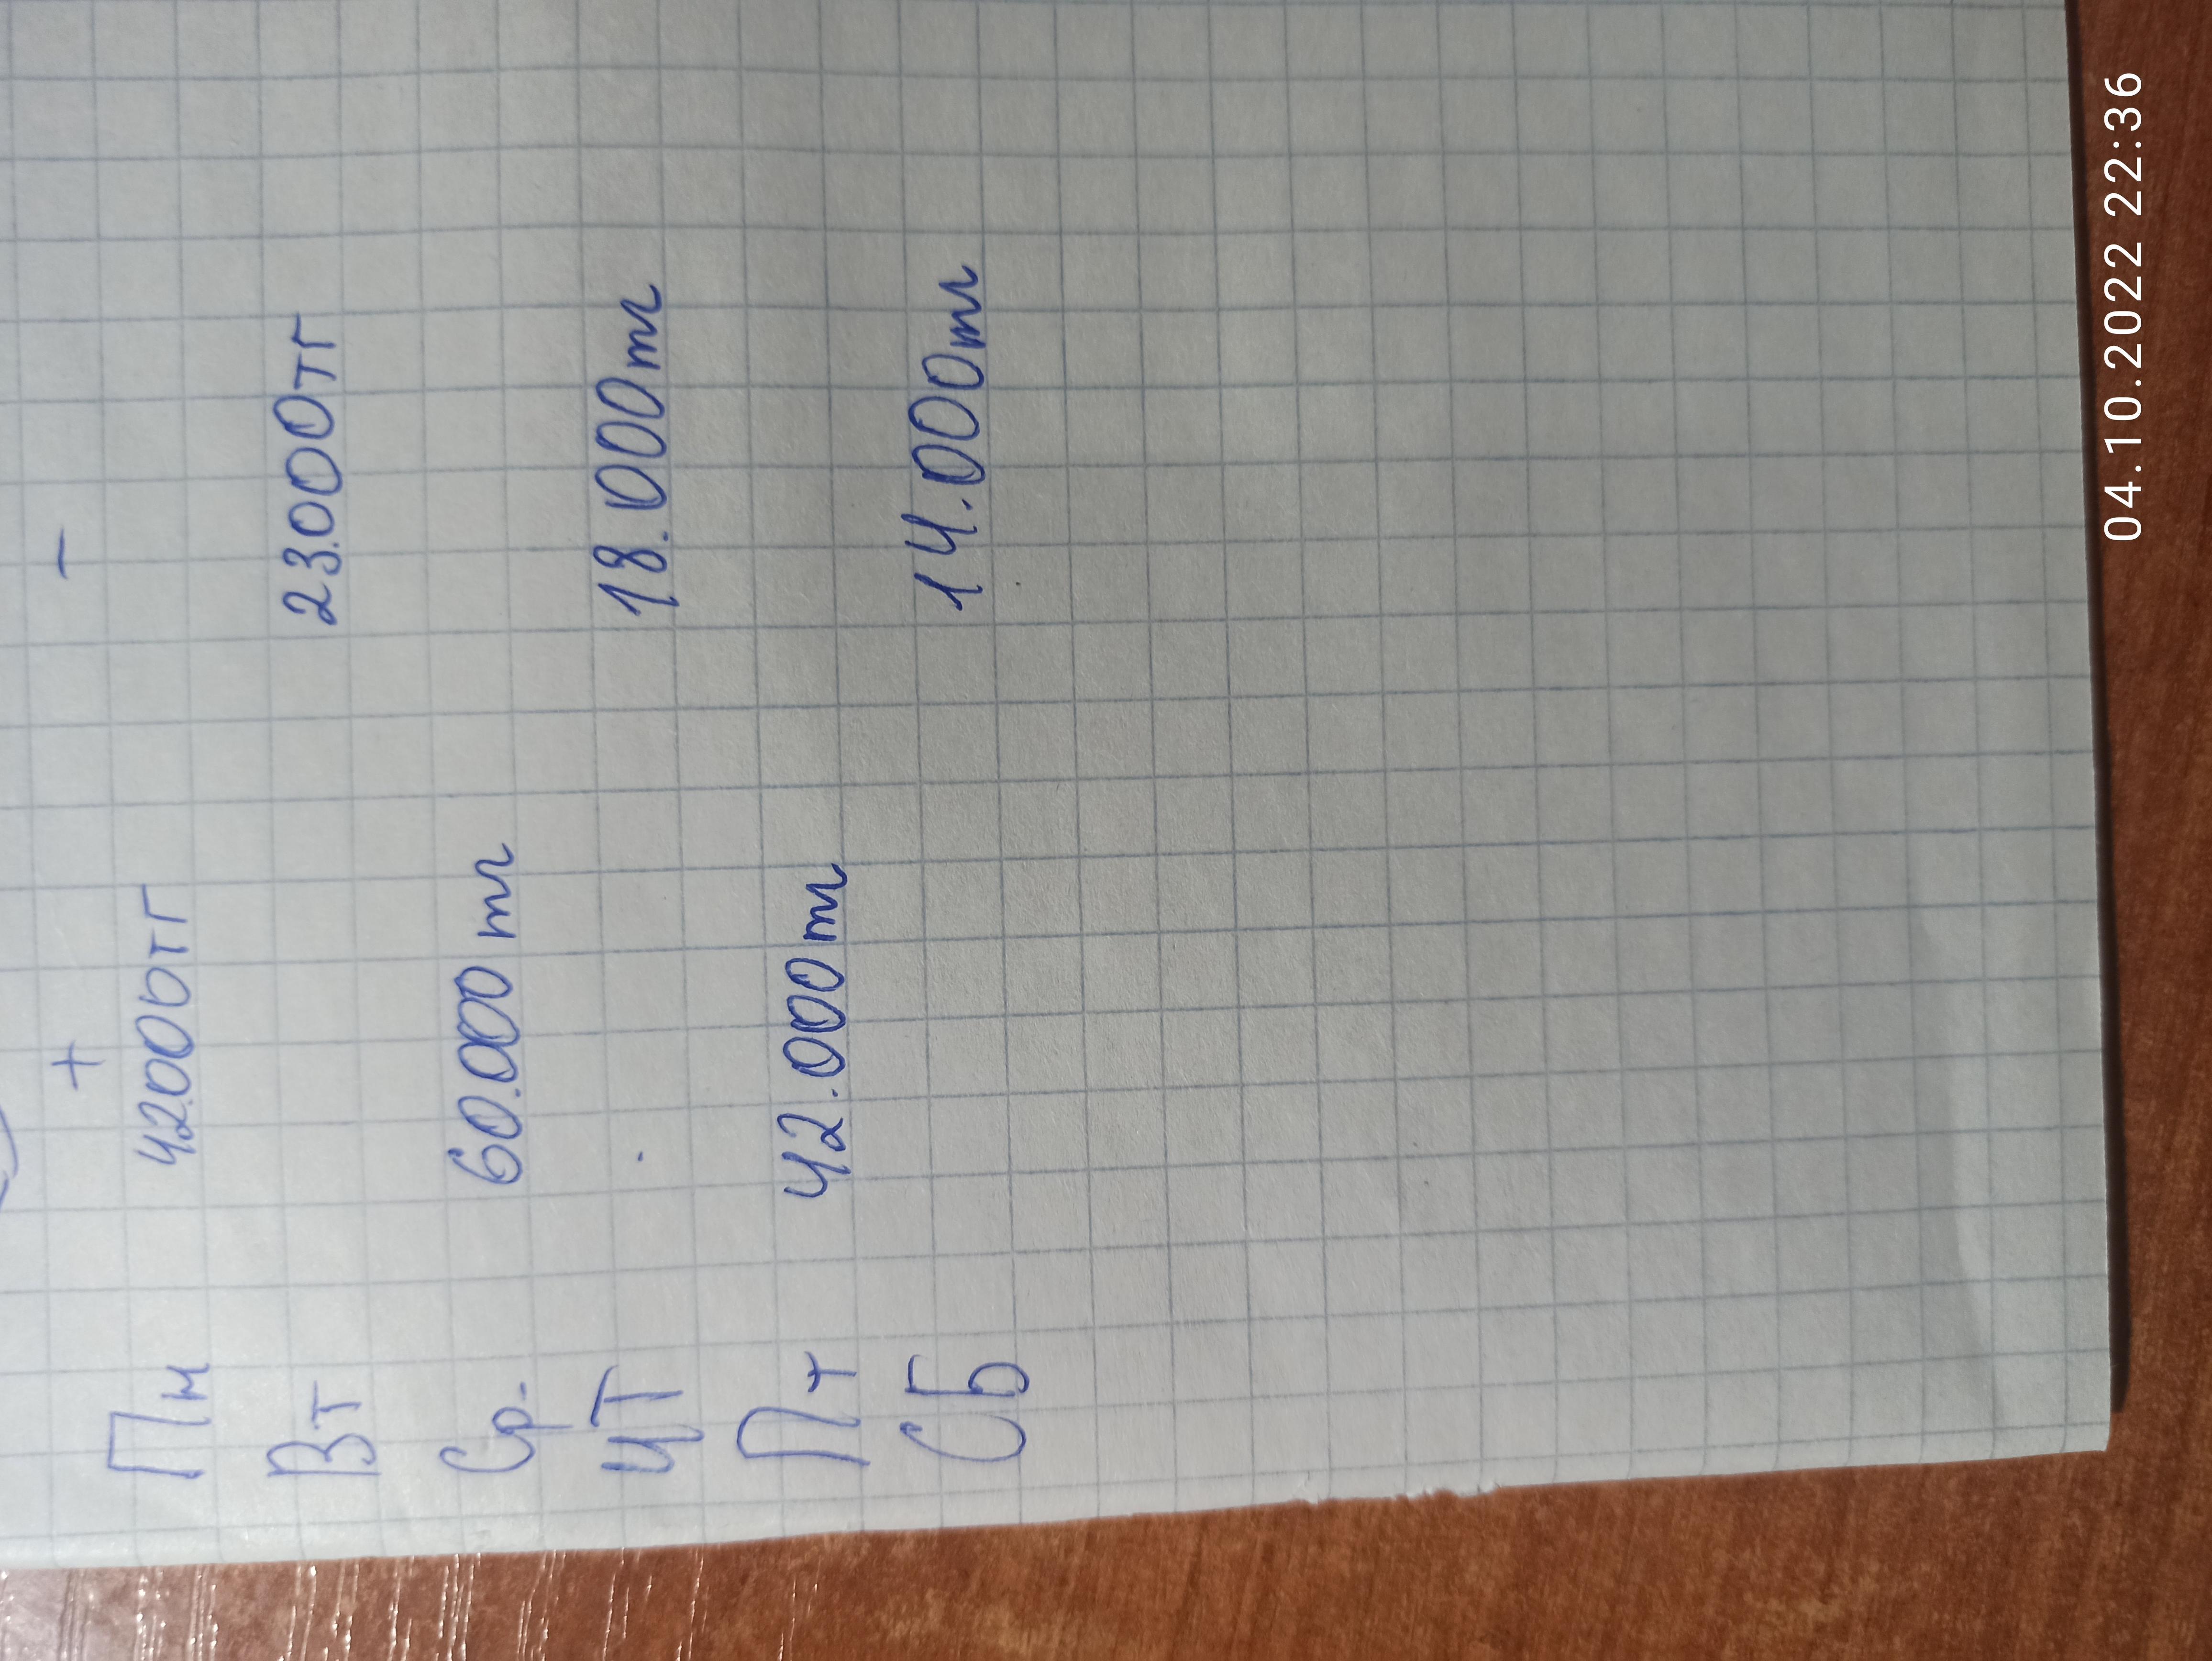 + -
Пн 42000тг
Вт 23.000тг
Ср. 60.000тг
ЧТ 18.000тг
Пт 42.000тг
СБ 14.000тг
04.10.2022 22:36